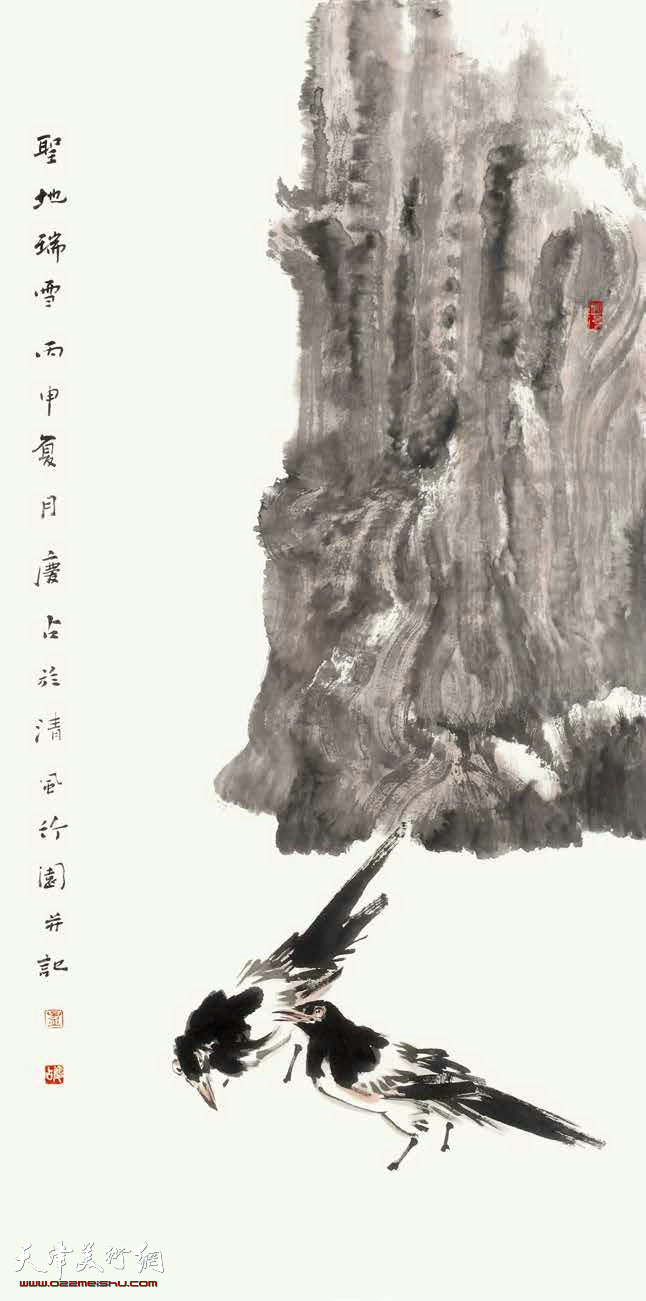 聖地瑞雪丙申夏月慶占於清風竹園并記
天津美術網
www.022meishu.com